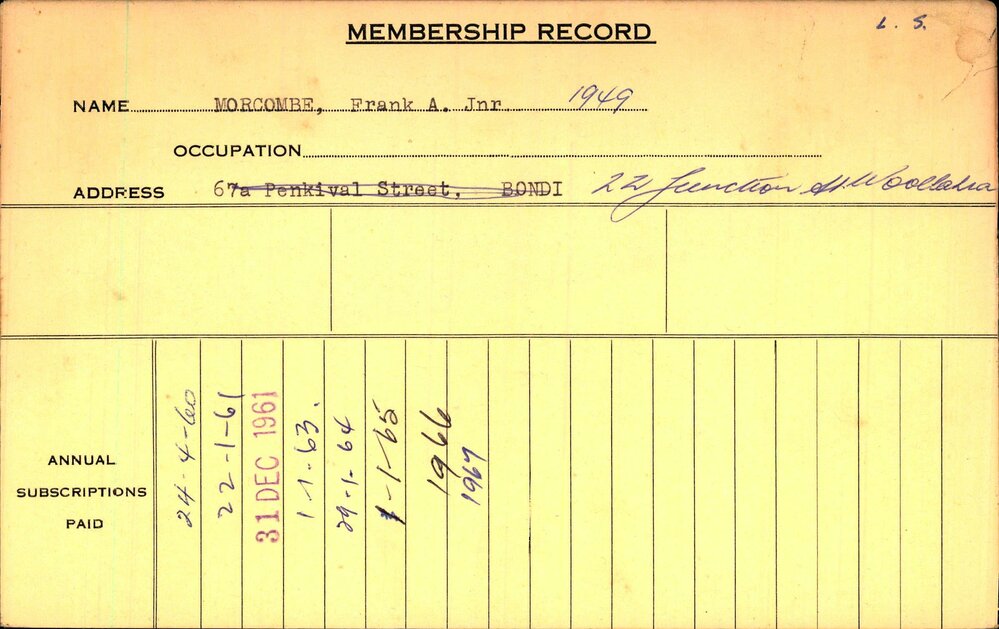 L. S.
MEMBERSHIP RECORD
NAME MORCOMBE, Frank A. Jnr 1949
OCCUPATION
ADDRESS 67a Penkival Street, BONDI 22 Junction St Woollahra
ANNUAL
SUBSCRIPTIONS
PAID
24-4-60
22-1-61
31 DEC 1961
1-1-63.
29-1-64
1-1-65
1966
1967